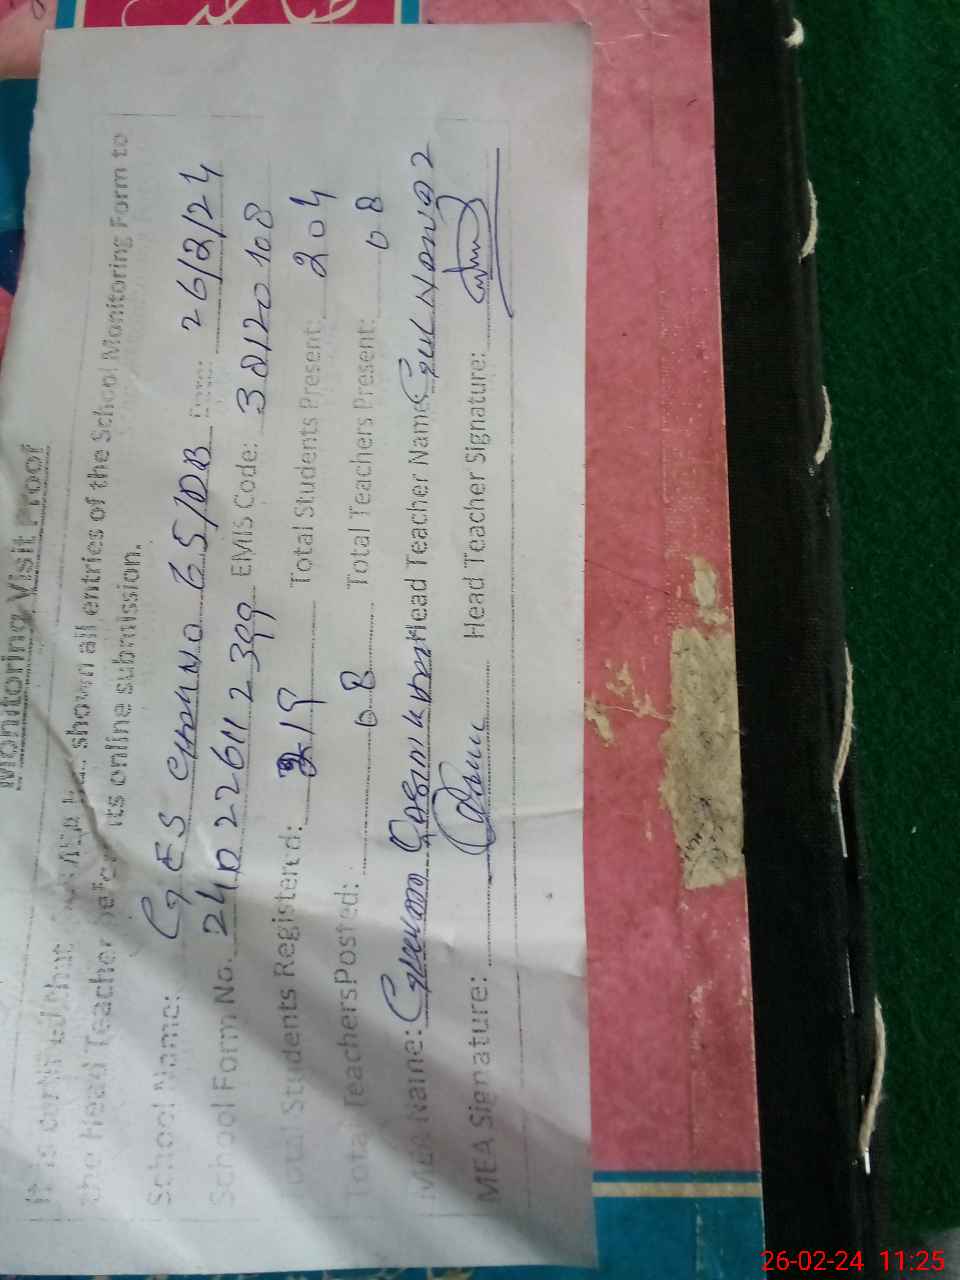 Monitoring Visit Proof
It is certified that shown all entries of the School Monitoring Form to
the Head Teacher before its online submission.
School Name: GES Chak No 65/DB Date: 26/2/24
School Form No. 24022611 2399 EMIS Code: 38120108
Total Students Registered: 219 Total Students Present: 204
Total Teachers Posted: 08 Total Teachers Present: 08
MEA Name: Ghulam Head Teacher Name: Gul Nawaz
MEA Signature: Head Teacher Signature:
26-02-24 11:25